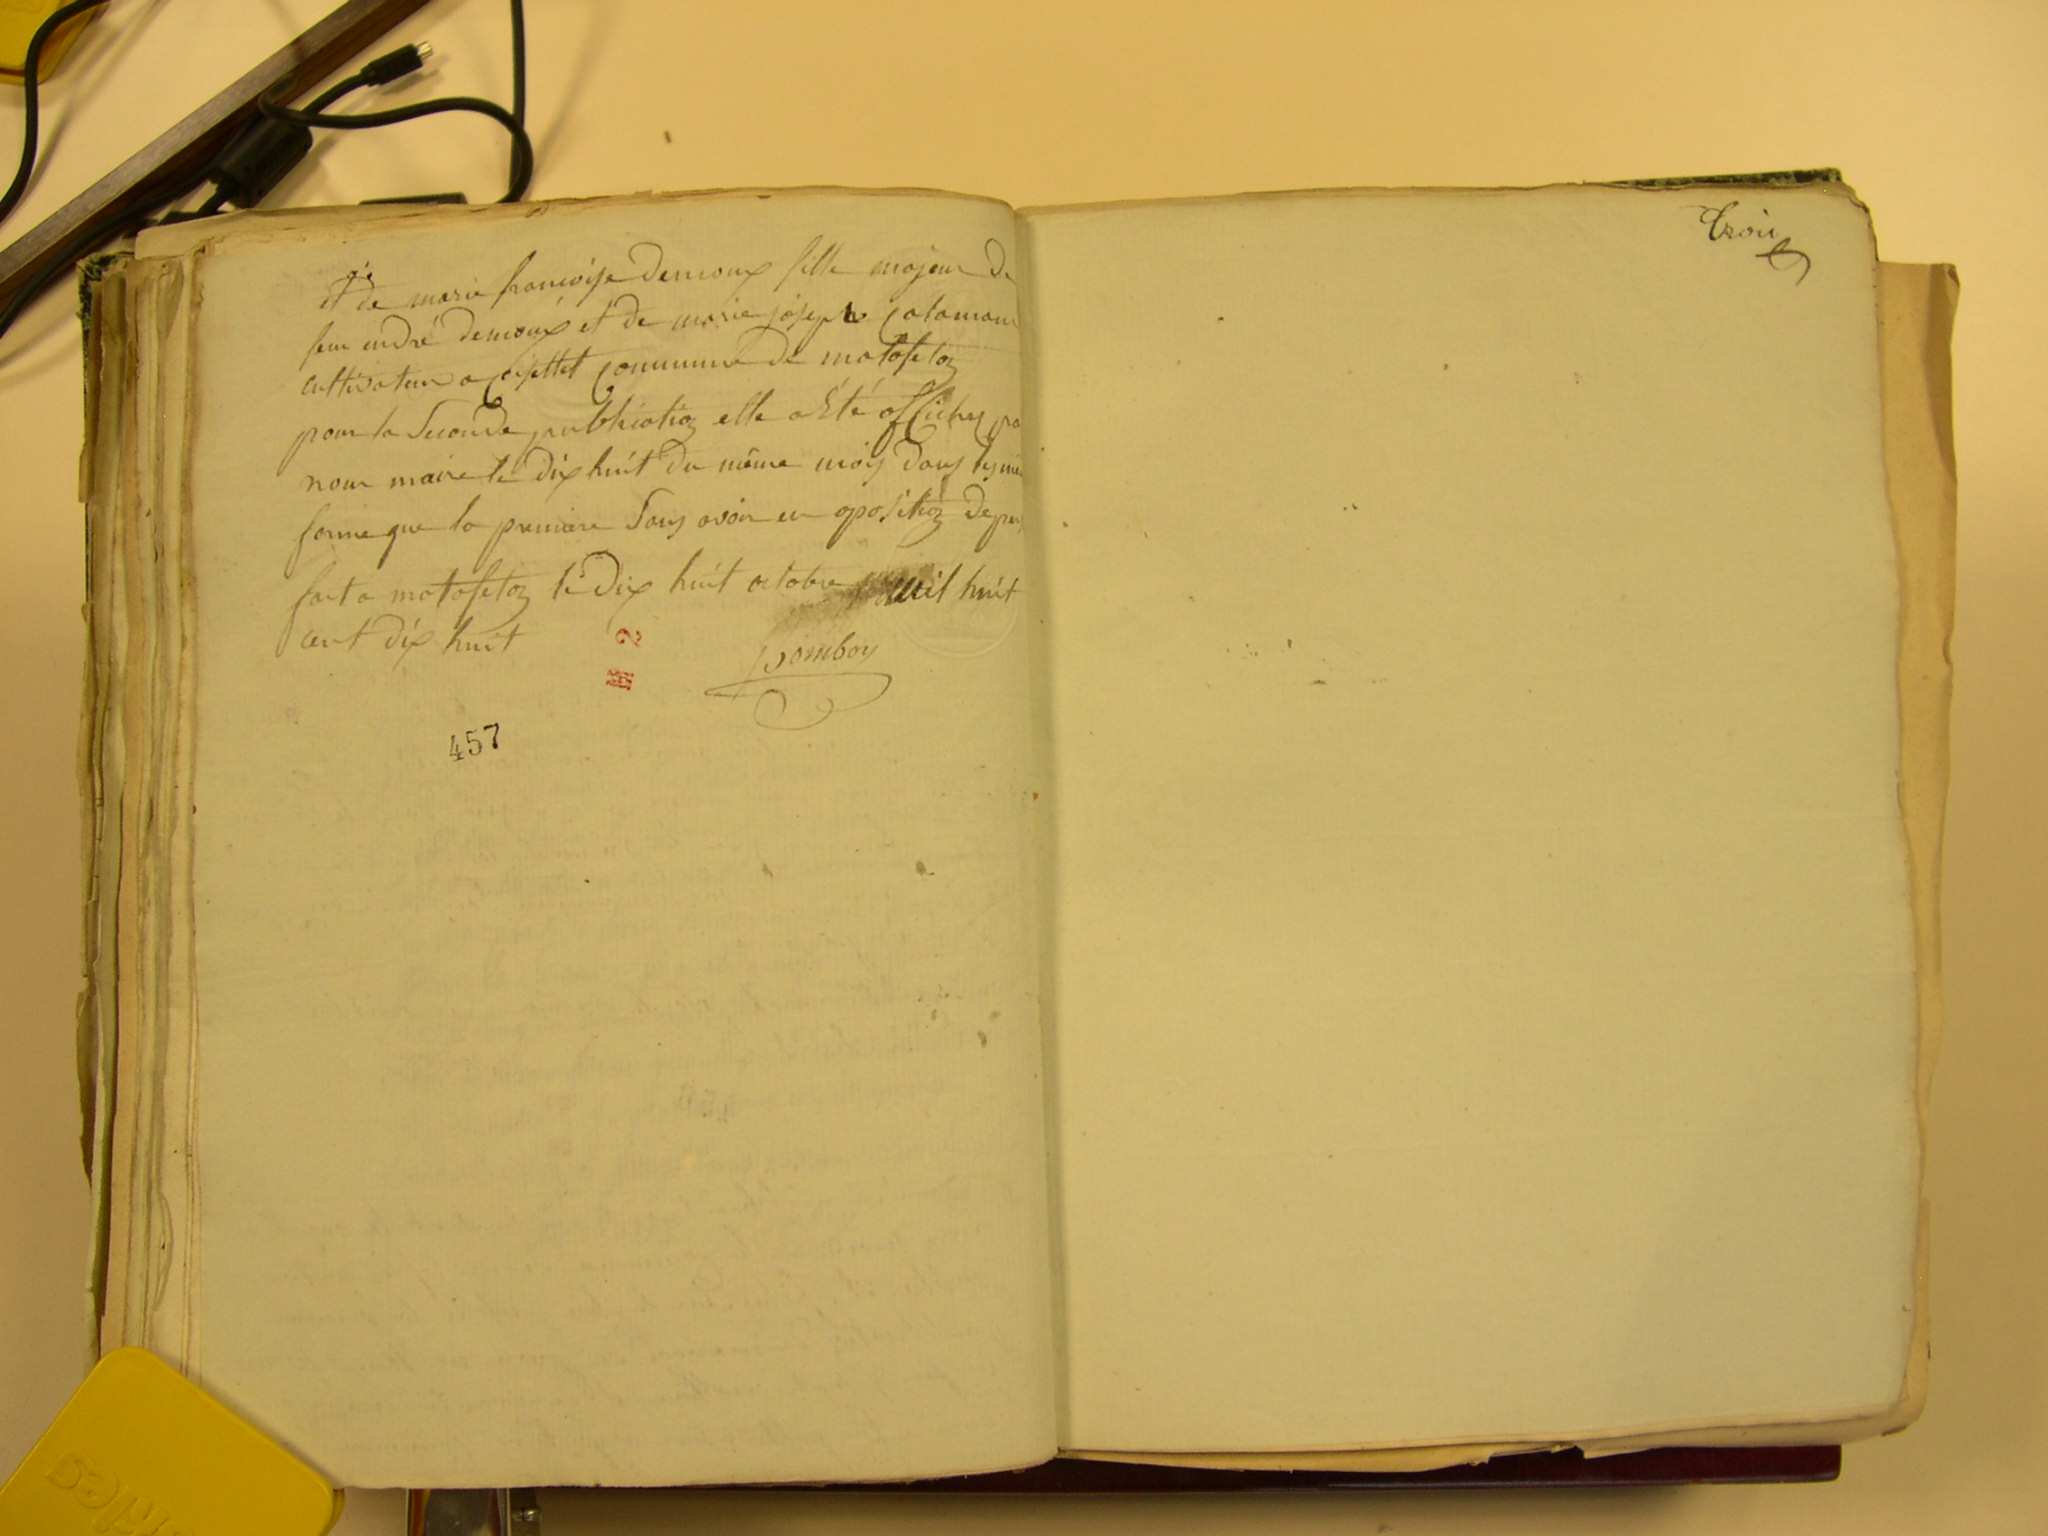 et de marie francoise demoux fille majeur de
feu endré demoux et de marie joseph Calaman
cultivateur a Cisettet Commune de matafelon
pour la Seconde publication elle a Eté affichez pa
nour maire le dix huit du même mois dans les mê
forme que la premiere Sans avoir eu oposition de per
fait a matafelon le dix huit octobre mil huit
cent dix huit
Bomboy
2
457
trois